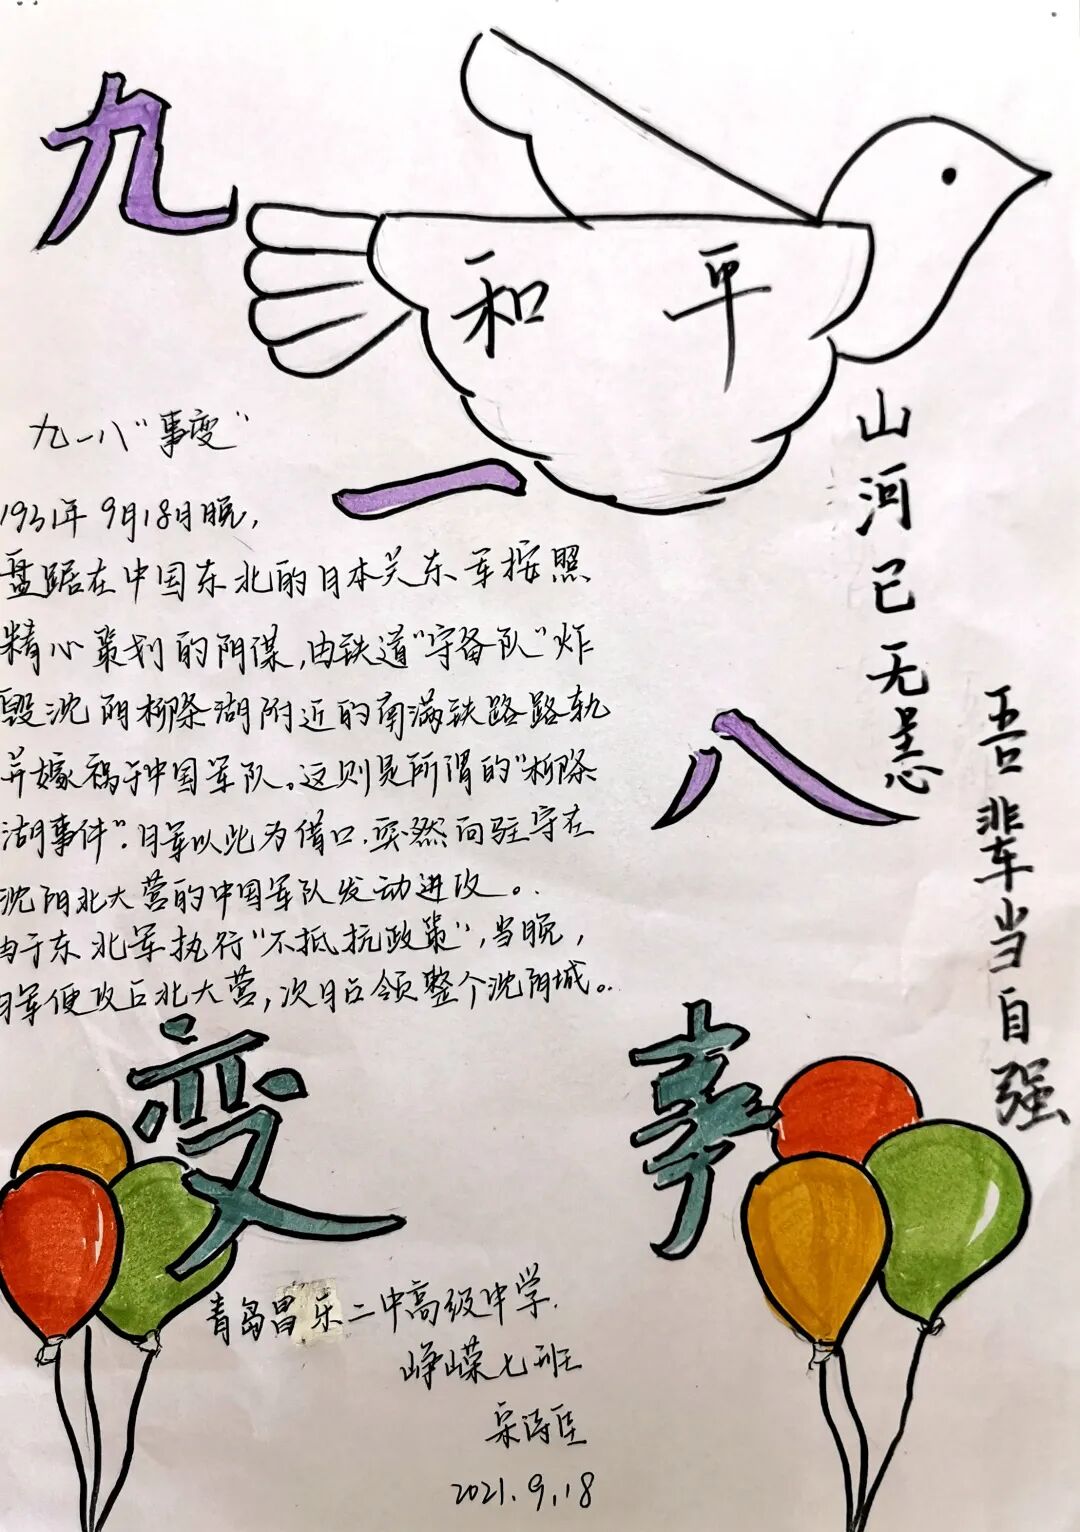 九
和平
九一八"事变"
一
1931年9月18日晚,
盘踞在中国东北的日本关东军按照
精心策划的阴谋,由铁道"守备队"炸
毁沈阳柳条湖附近的南满铁路路轨
并嫁祸于中国军队。这则是所谓的"柳条
湖事件".日军以此为借口,突然向驻守在
沈阳北大营的中国军队发动进攻。.
由于东北军执行"不抵抗政策",当晚,
日军便攻占北大营,次日占领整个沈阳城。.
八
山河已无恙
吾辈当自强
变
事
青岛昌乐二中高级中学.
峥嵘七班
宋诗佳
2021.9.18